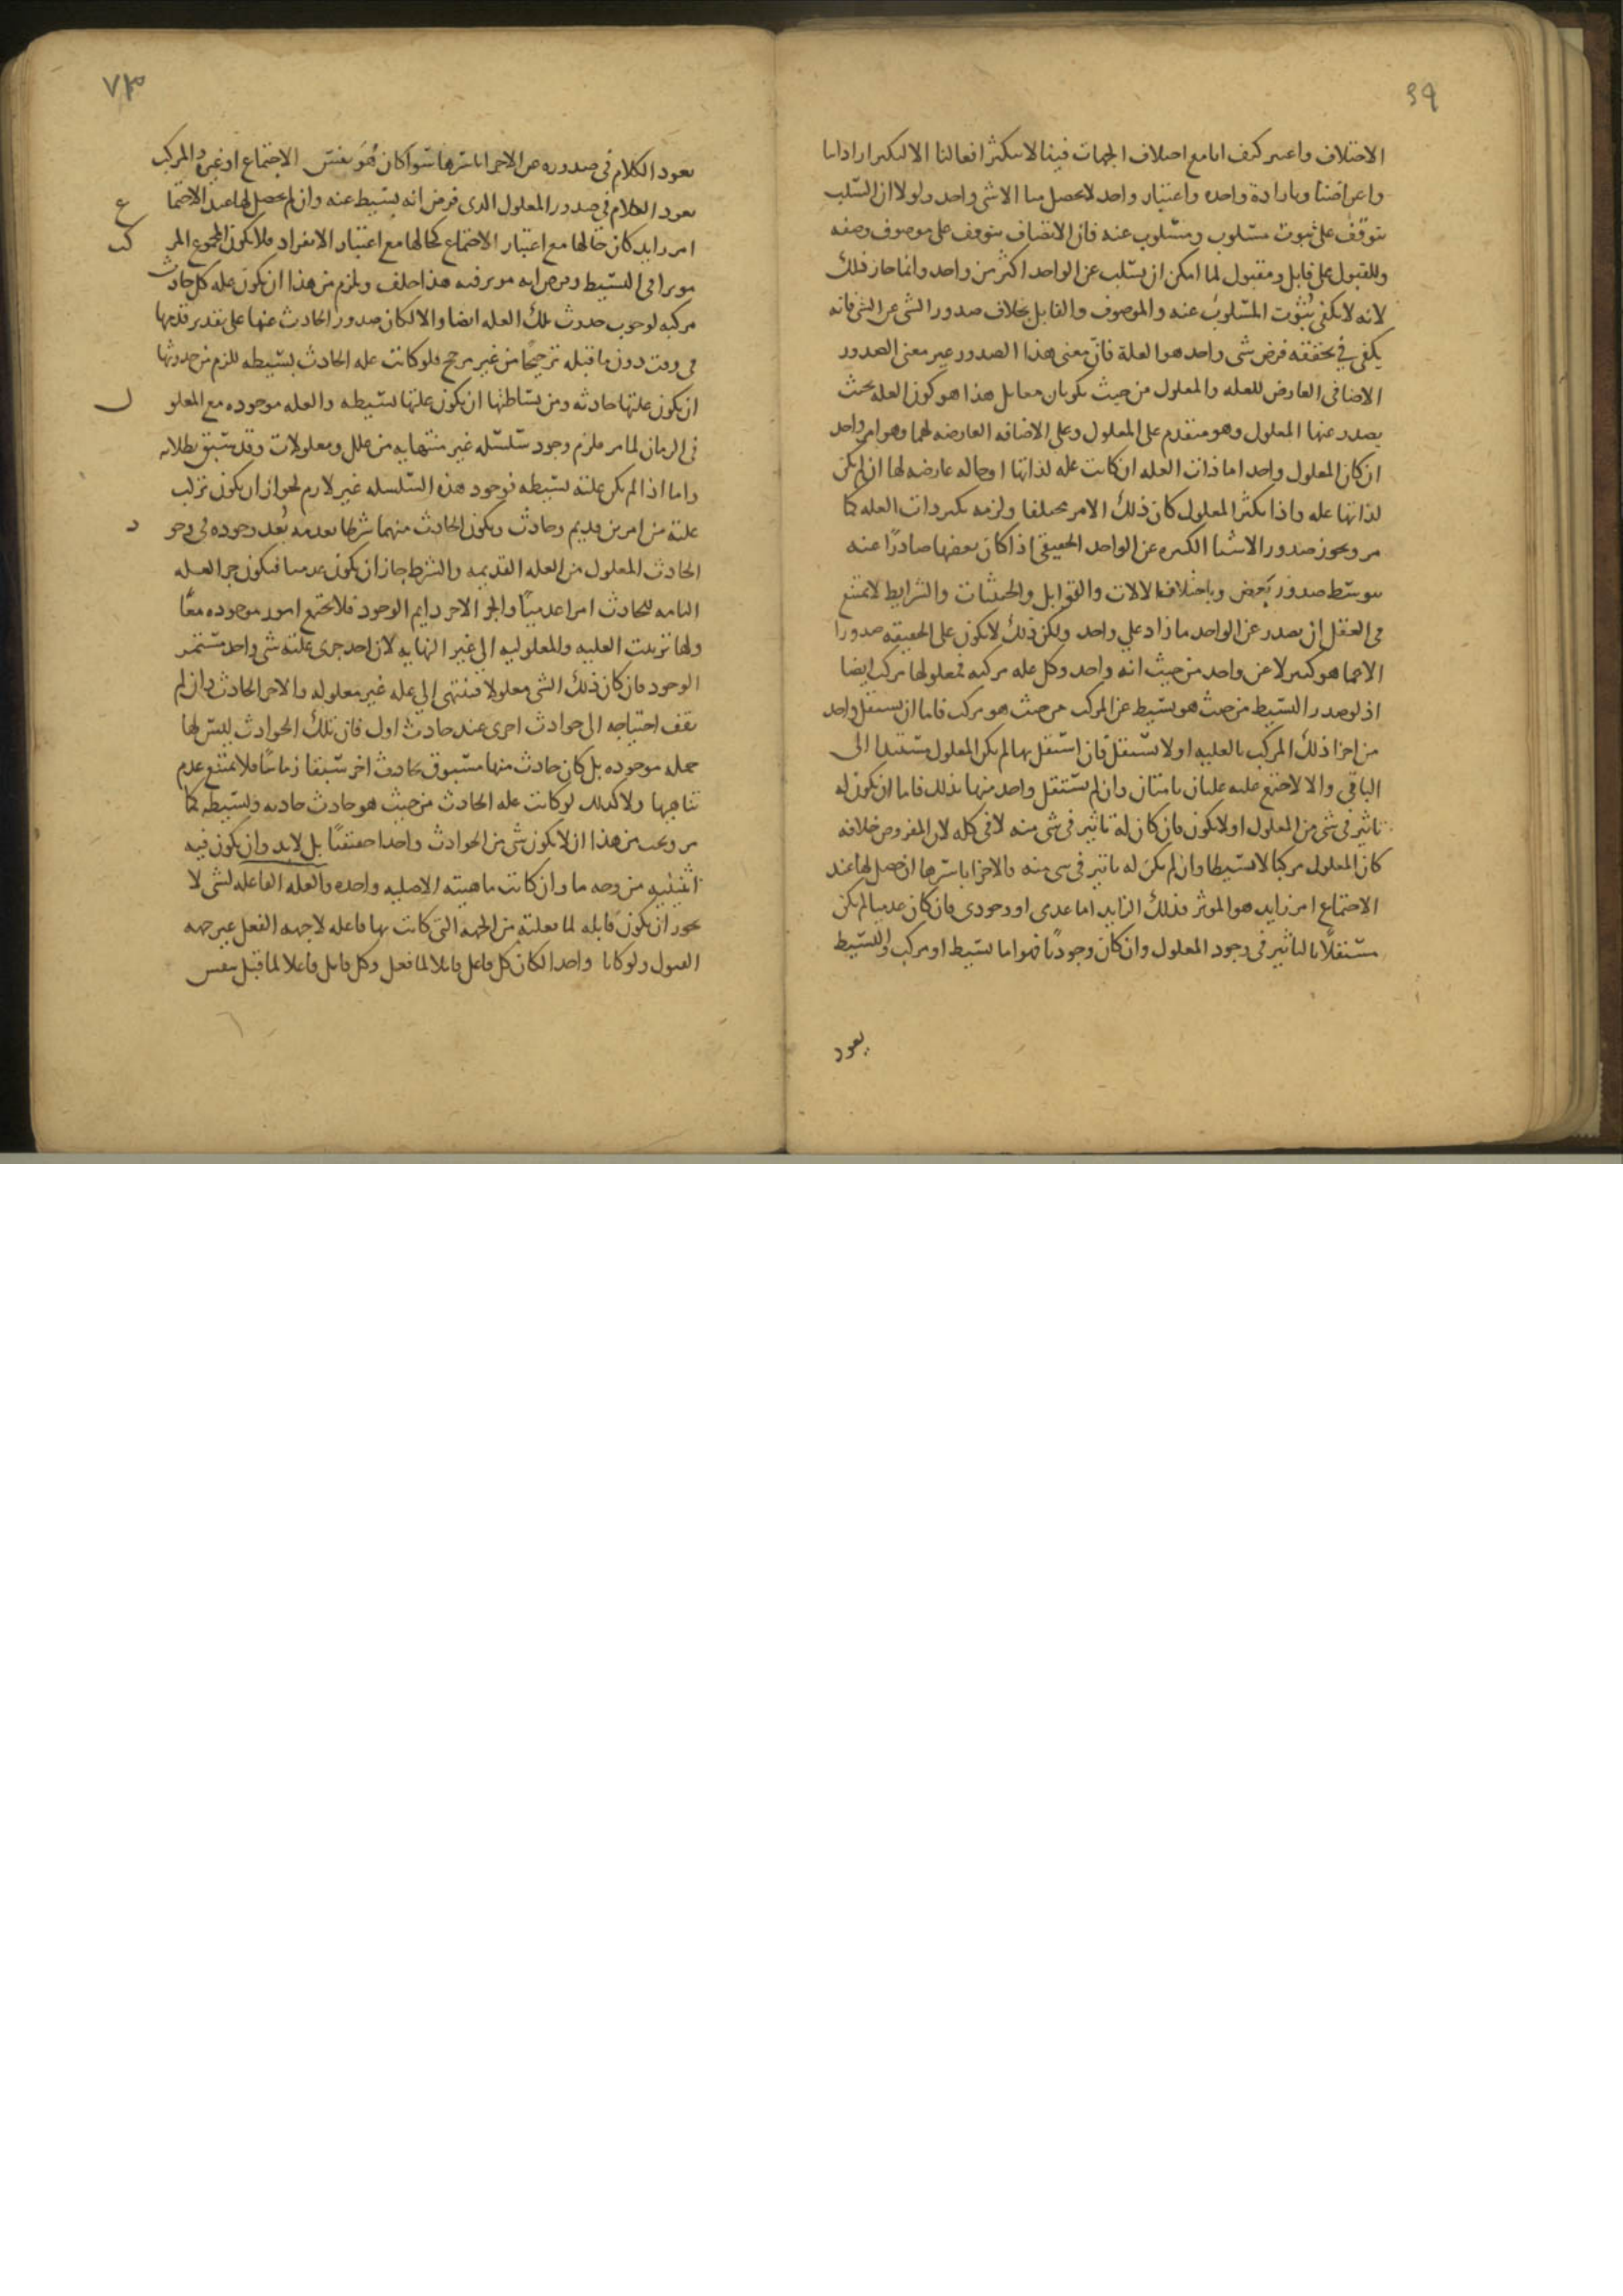 ٦٩
الاختلاف واعتبر كيف انا مع اختلاف الجهات فينا لا يتكثر افعالنا الا لتكثر اراداتنا
واعراضنا وبارادة واحده واعتبار واحد لا يحصل منا الا شي واحد ولولا ان السلب
يتوقف على ثبوت مسلوب ومسلوب عنه فان الاتصاف يتوقف على موصوف وصفه
وللقبول على قابل ومقبول لما امكن ان يسلب عن الواحد اكثر من واحد وانما جاز ذلك
لانه لا يكفي ثبوت المسلوب عنه والموصوف والقابل بخلاف صدور الشي عن الشي فانه
يكفي في تحققه فرض شي واحد هو العلة فان معنى هذا الصدور غير معنى الصدور
الاضافي العارض للعله والمعلول من حيث يكونان معا بل هذا هو كون العله بحيث
يصدر عنها المعلول وهو متقدم على المعلول وعلى الاضافه العارضه لهما وهو امر واحد
ان كان المعلول واحد اما ذات العله ان كانت علة لذاتها او حاله عارضه لها ان لم يكن
لذاتها علة واذا تكثر المعلول كان ذلك الامر مختلفا ولزمه تكثر ذات العله كما
مر ويجوز صدور الاشيا الكثيره عن الواحد الحقيقي اذا كان بعضها صادرًا عنه
بتوسط صدور بعض وباختلاف الالات والقوابل والحيثيات والشرايط لا يمتنع
في العقل ان يصدر عن الواحد ما زاد علي واحد ولكن ذلك لا يكون على الحقيقه صدورا
الا مما هو كثير لا عن واحد من حيث انه واحد وكل عله مركبه فمعلولها مركب ايضا
اذ لو صدر البسيط من حيث هو بسيط عن المركب من حيث هو مركب فاما ان يستقل واحد
من اجزا ذلك المركب بالعليه او لا يستقل فان استقل بها لم يكن المعلول مستندا الى
الباقي والا لاجتمع عليه علتان تامتان وان لم يستقل واحد منها بذلك فاما ان يكون له
تاثير في شي من المعلول او لا يكون فان كان له تاثير في شي منه لا في كله لان المفروض خلافه
كان المعلول مركبا لا بسيطا وان لم يكن له تاثير في شي منه فالاجزا باسرها ان حصل لها عند
الاجتماع امر زايد هو الموثر فذلك الزايد اما عدمي او وجودي فان كان عدميا لم يكن
مستقلًا بالتاثير في وجود المعلول وان كان وجوديًا فهو اما بسيط او مركب والبسيط
يعود
٧٣
يعود الكلام في صدوره عن الاجزا باسرها سوا كان هو نفس الاجتماع او غيره والمركب
يعود الكلام في صدور المعلول الذي فرض انه بسيط عنه وان لم يحصل لها عند الاجتما ع
امر زايد كان حالها مع اعتبار الاجتماع كحالها مع اعتبار الانفراد فلا يكون المجموع المر كب
موثرا في البسيط وفرض انه موثر فيه هذا خلف ويلزم من هذا ان يكون عله كل حادث
مركبه لوجوب حدوث تلك العله ايضا والا لكان صدور الحادث عنها على تقدير قدمها
في وقت دون ما قبله ترجيحًا من غير مرجح فلو كانت عله الحادث بسيطه للزم من حدوثها
ان يكون علتها حادثه ومن بساطتها ان يكون علتها بسيطه والعله موجوده مع المعلو ل
في الزمان لما مر فلزم وجود سلسله غير متناهيه من علل ومعلولات وقد سبق بطلانه
واما اذا لم يكن علته بسيطه فوجود هذه السلسله غير لازم لجواز ان يكون تركب
علته من امرين قديم وحادث ويكون الحادث منهما شرطا بعدمه بعد وجوده في وجو د
الحادث المعلول من العله القديمه والشرط جاز ان يكون عدميا فيكون جز العله
التامه للحادث امرا عدميًا والجز الاخر دايم الوجود فلا يجتمع امور موجوده معًا
ولها ترتب العليه والمعلوليه الى غير النهايه لان احد جزئ علته شي واحد مستمر
الوجود فان كان ذلك الشي معلولا فينتهي الي عله غير معلوله والاخر الحادث وان لم
يقف احتياجه الى حوادث اخرى عند حادث اول فان تلك الحوادث ليس لها
جمله موجوده بل كان حادث منها مسبوق بحادث اخر سبقا زمانيًا فلا يمتنع عدم
تناهيها ولا كذلك لو كانت عله الحادث من حيث هو حادث حادثه وبسيطه كما
مر ويجب من هذا ان لا يكون شي من الحوادث واحدا حقيقيًا بل لا بد وان يكون فيه
اثنينيه من وجه ما وان كانت ماهيته الاصليه واحده والعله الفاعله لشي لا
يجوز ان يكون قابله لما بعليته من الجهه التي كانت بها فاعله لا جهه الفعل غير جهه
القبول ولو كانا واحدا لكان كل فاعل قابلا لما فعل وكل قابل فاعلا لما قبل بنفس